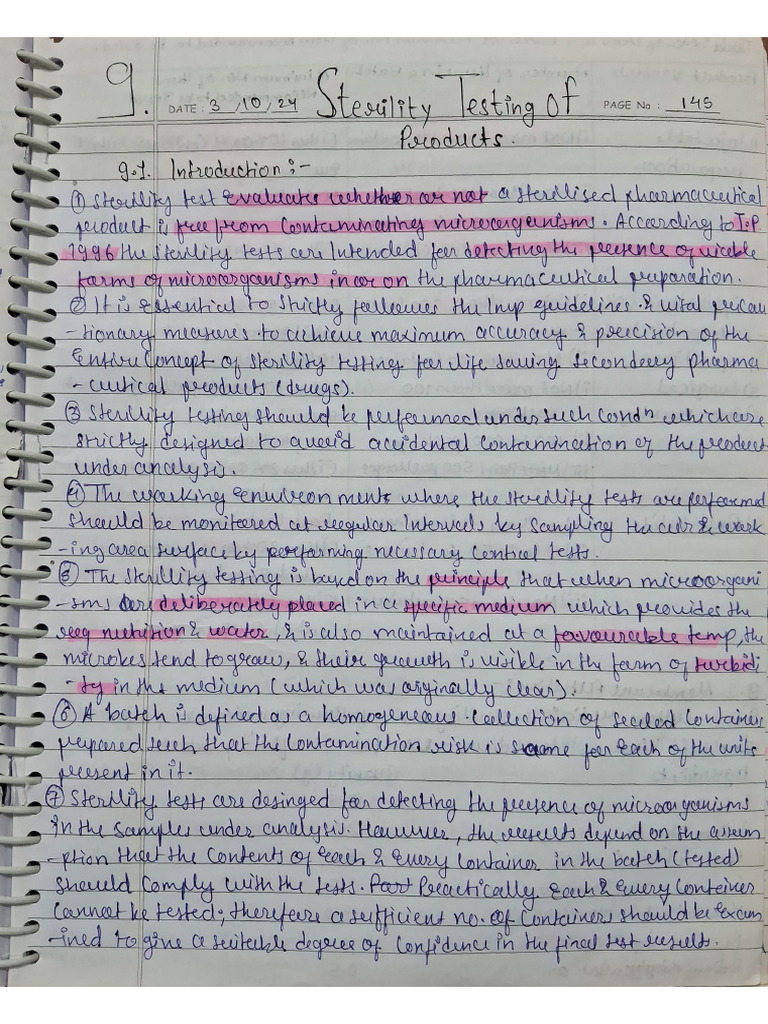 9. DATE: 3/10/24 Sterility Testing Of PAGE No: 145
Products.
9.1. Introduction:-
① Sterility test evaluates whether or not a sterilised pharmaceutical
product is free from contaminating microorganisms. According to I.P
1996 the sterility tests are intended for detecting the presence of viable
forms of microorganisms in or on the pharmaceutical preparation.
② It is essential to strictly follows the Imp guidelines & vital precau
-tionary measures to achieve maximum accuracy & precision of the
entire concept of sterility testing for life saving secondary pharma
-ceutical products (drugs).
③ Sterility testing should be performed under such condn which are
strictly designed to avoid accidental contamination of the product
under analysis.
④ The working environment where the sterility tests are performed
should be monitored at regular intervals by sampling the air & work
-ing area surface by performing necessary control tests.
⑤ The sterility testing is based on the principle that when microorgani
-sms are deliberately placed in a specific medium which provides the
req nutrition & water, & is also maintained at a favourable temp, the
microbes tend to grow, & their growth is visible in the form of turbidi
-ty in the medium (which was originally clear).
⑥ A batch is defined as a homogeneous collection of sealed container
prepared such that the contamination risk is same for each of the units
present in it.
⑦ Sterility tests are desinged for detecting the presence of microorganisms
in the samples under analysis. However, the results depend on the assum
-ption that the contents of each & every container in the batch (tested)
should comply with the tests. Practically each & every container
cannot be tested; therefore a sufficient no. of containers should be exam
-ined to give a suitable degree of confidence in the final test results.